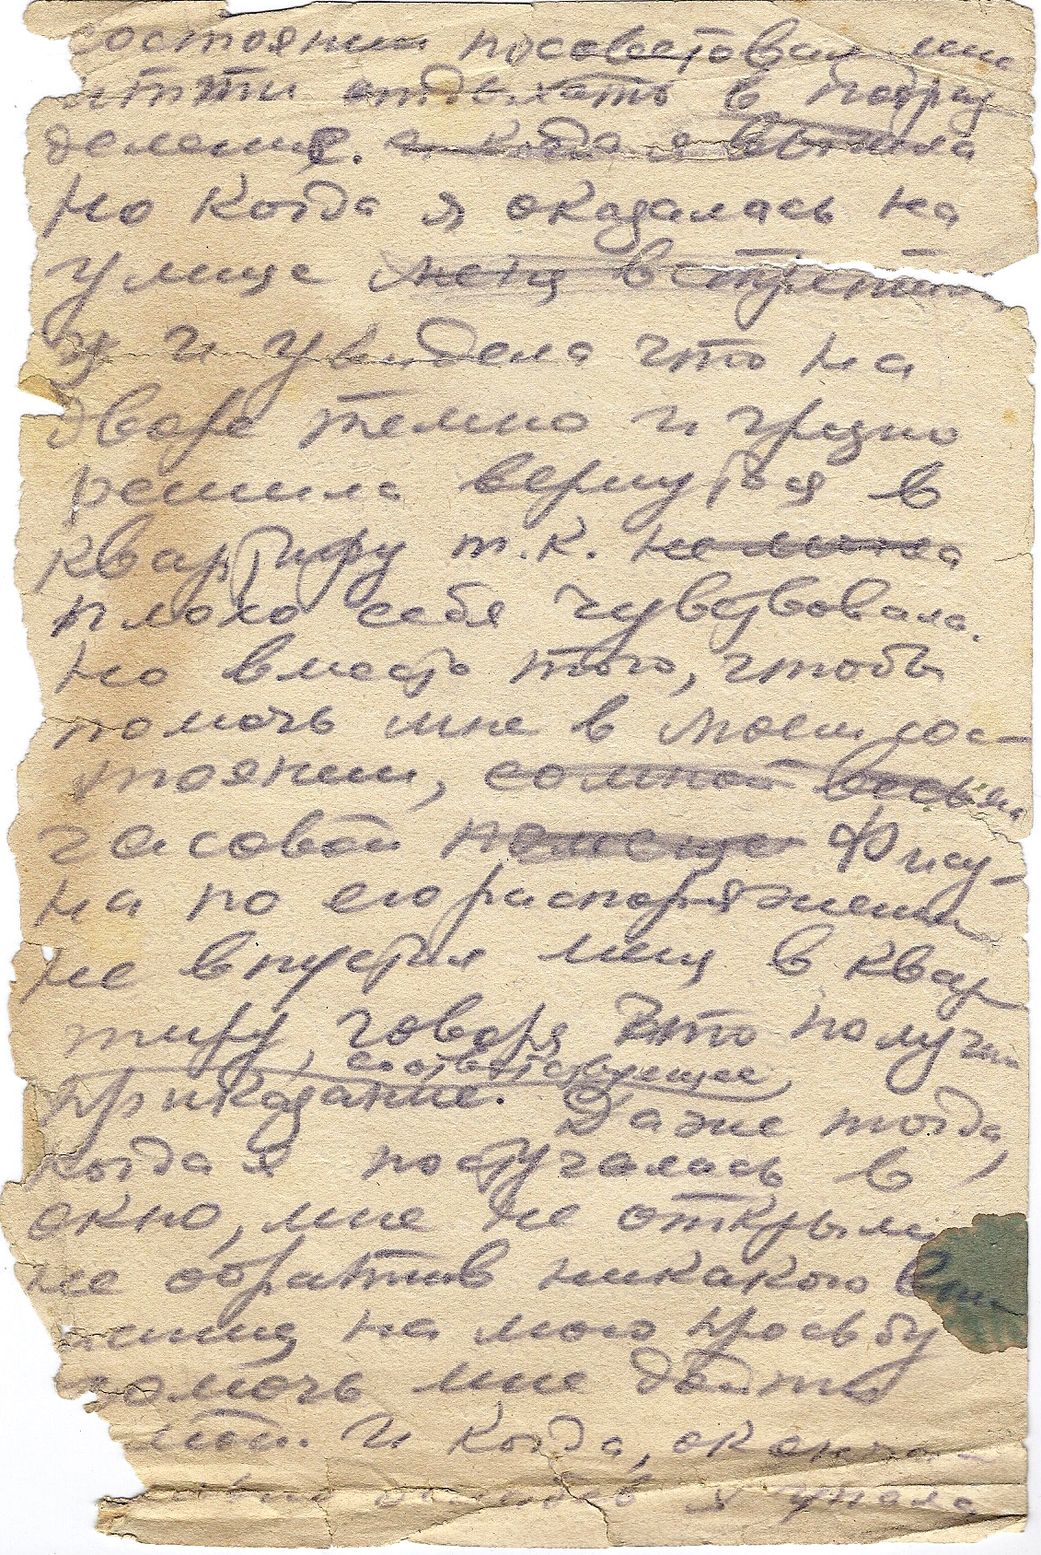 состоянии посоветовал мне
итти отдыхать в подраз
деление. а когда я вышла
Но когда я оказалась на
улице меня встретил
и увидела что на
дворе темно и грязно
решила вернуться в
квартиру т.к.
плохо себя чувствовала.
Но вместо того, чтобы
помочь мне в моем сос-
тоянии, со мной
часовой Фису-
на по его распоряжению
не впустил меня в квар
тиру, говоря что получил
соответствующее
приказание. Даже тогда,
когда я постучалась в
окно, мне не открыли
не обратив никакого вни
мания на мою просьбу
помочь мне дойти
И когда,
я упала